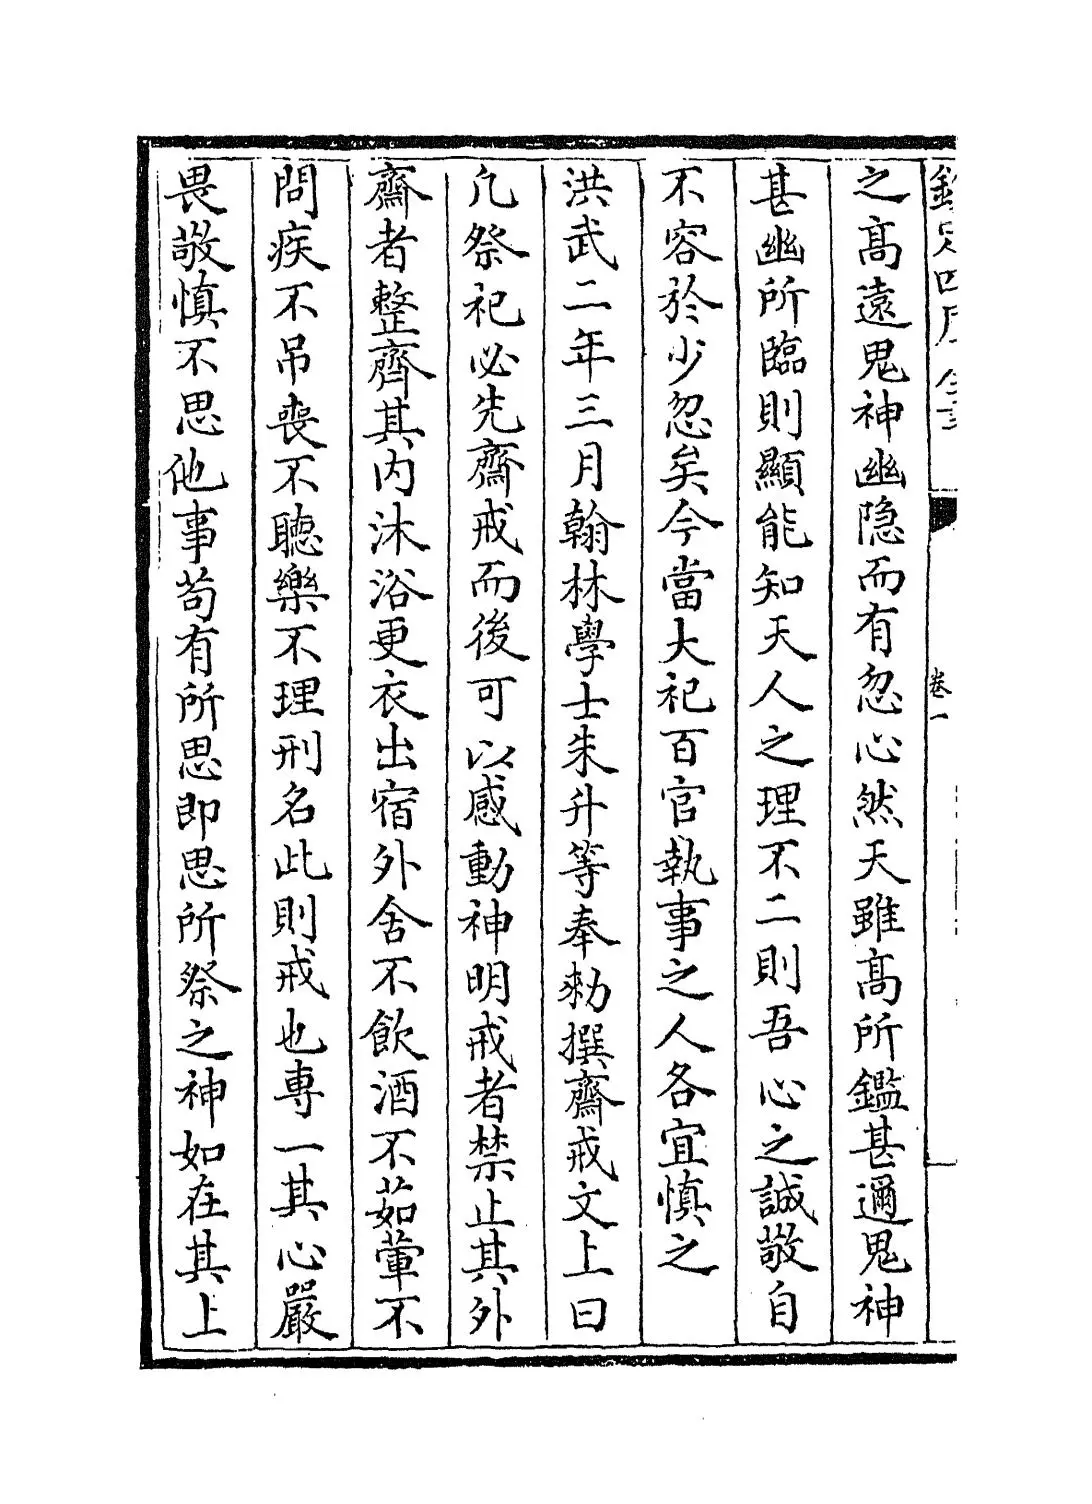 欽定四庫全書
卷一
之髙遠鬼神幽隐而有忽心然天雖髙所鑑甚邇鬼神
甚幽所臨則顯能知天人之理不二則吾心之誠敬自
不容於少忽矣今當大祀百官執事之人各宜慎之
洪武二年三月翰林學士朱升等奉勑撰齋戒文上曰
凡祭祀必先齋戒而後可以感動神明戒者禁止其外
齋者整齊其内沐浴更衣出宿外舍不飲酒不茹葷不
問疾不吊喪不聽樂不理刑名此則戒也専一其心嚴
畏敬慎不思他事苟有所思即思所祭之神如在其上